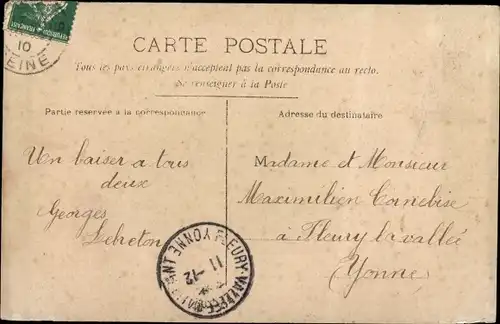 10
EINE
CARTE POSTALE
Tous les pays étrangers n'acceptent pas la correspondance au recto.
Se renseigner à la Poste
Partie réservée à la correspondance
Adresse du destinataire
Un baiser a tous
deux
Georges
Lebreton
Madame et Monsieur
Maximilien
à Fleury la vallée
Yonne
FLEURY-VALLÉE YONNE
11-12